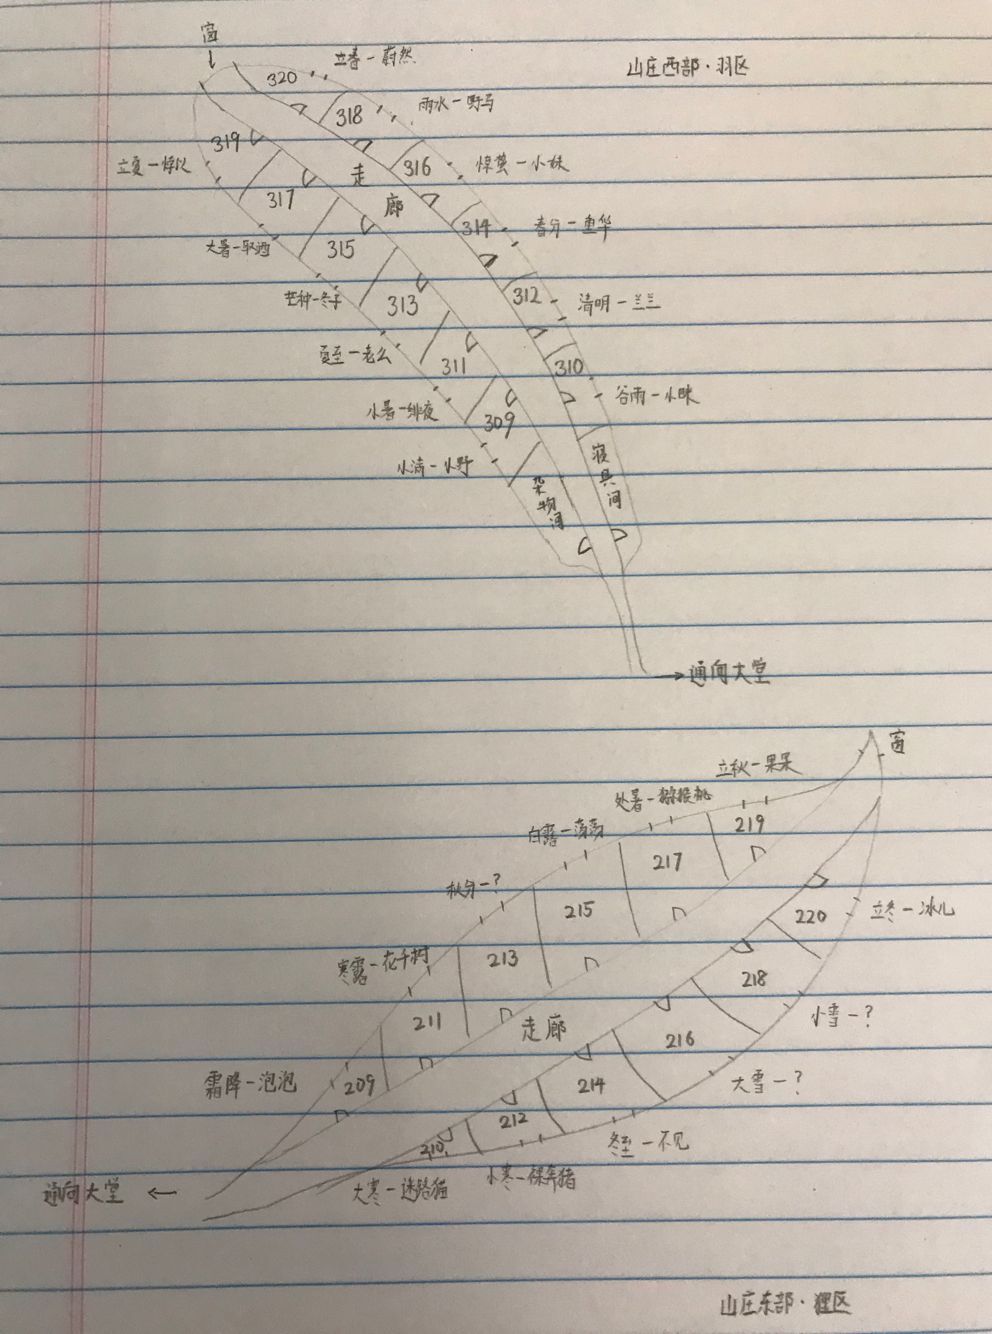 窗
立春-蔚然
山庄西部·羽区
320
318
雨水-野马
319
立夏-惇以
走
廊
316
惊蛰-小妹
317
314
春分-重华
大暑-取酒
315
芒种-冬子
313
312
清明-兰兰
夏至-老么
311
310
谷雨-小昧
小暑-绯夜
309
小满-小野
杂物间
寝具间
→通向大堂
窗
立秋-果呆
处暑-猕猴桃
219
白露-荡荡
217
秋分-?
215
220
立冬-冰儿
寒露-花千树
213
218
211
走廊
216
小雪-?
霜降-泡泡
209
214
大雪-?
212
冬至-不见
210
小寒-裸奔猪
大寒-迷路猫
通向大堂 ←
山庄东部·狸区